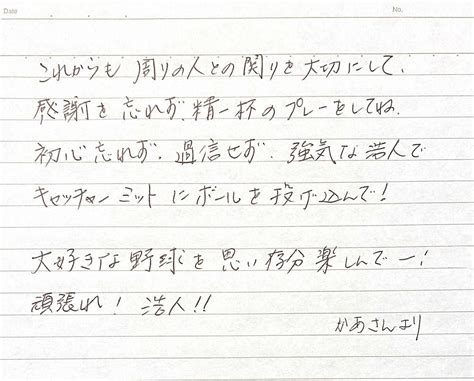 Date
No.
これからも 周りの人との関りを大切にして、
感謝を忘れず、精一杯のプレーをしてね。
初心忘れず、過信せず、強気な浩人で
キャッチャーミットにボールを投げ込んで!
大好きな野球を思い存分楽しんでー!
頑張れ! 浩人!!
かあさんより